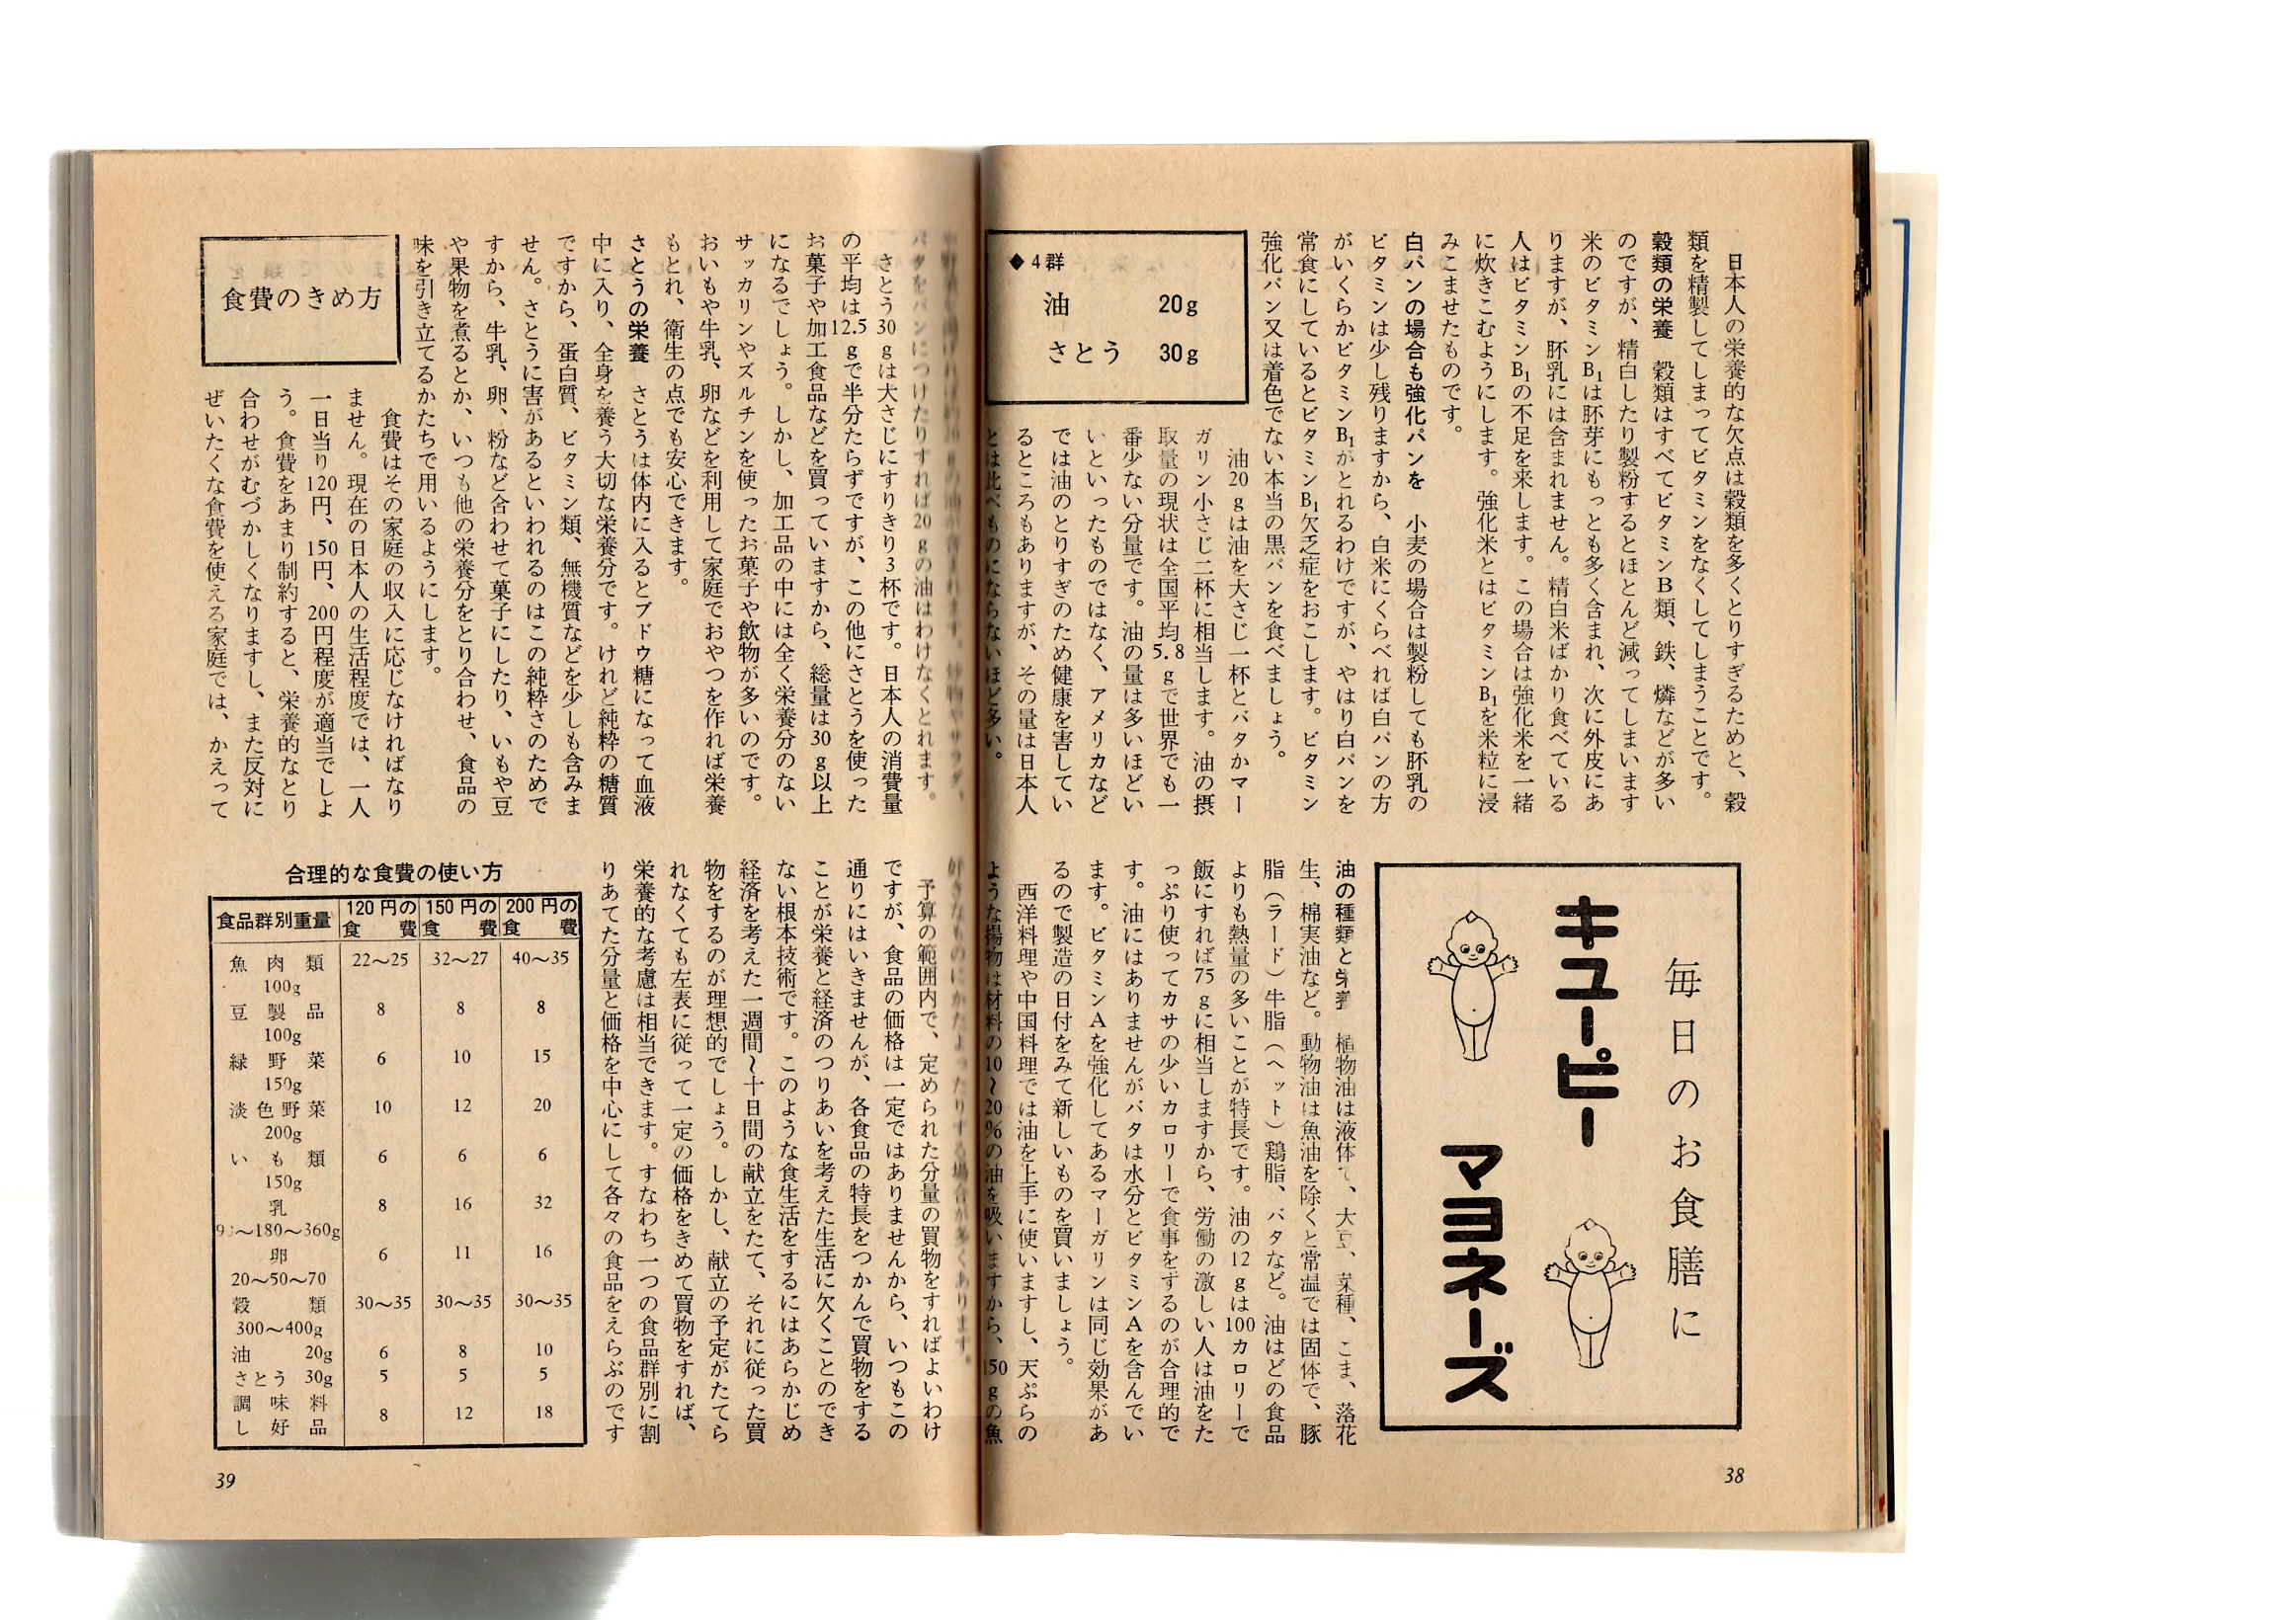 日本人の栄養的な欠点は穀類を多くとりすぎるためと、穀
類を精製してしまってビタミンをなくしてしまうことです。
穀類の栄養　穀類はすべてビタミンB類、鉄、燐などが多い
のですが、精白したり製粉するとほとんど減ってしまいます
米のビタミンB₁は胚芽にもっとも多く含まれ、次に外皮にあ
りますが、胚乳には含まれません。精白米ばかり食べている
人はビタミンB₁の不足を来します。この場合は強化米を一緒
に炊きこむようにします。強化米とはビタミンB₁を米粒に浸
みこませたものです。
白パンの場合も強化パンを　小麦の場合は製粉しても胚乳の
ビタミンは少し残りますから、白米にくらべれば白パンの方
がいくらかビタミンB₁がとれるわけですが、やはり白パンを
常食にしているとビタミンB₁欠乏症をおこします。ビタミン
強化パン又は着色でない本当の黒パンを食べましょう。
◆4群
油　20g
さとう　30g
油20gは油を大さじ一杯とバタかマー
ガリン小さじ二杯に相当します。油の摂
取量の現状は全国平均5.8gで世界でも一
番少ない分量です。油の量は多いほどい
いといったものではなく、アメリカなど
では油のとりすぎのため健康を害してい
るところもありますが、その量は日本人
とは比べものにならないほど多い。
毎日のお食膳に
キユーピー
マヨネーズ
油の種類と栄養　植物油は液体で、大豆、菜種、ごま、落花
生、棉実油など。動物油は魚油を除くと常温では固体で、豚
脂（ラード）牛脂（ヘット）鶏脂、バタなど。油はどの食品
よりも熱量の多いことが特長です。油の12gは100カロリーで
飯にすれば75gに相当しますから、労働の激しい人は油をた
っぷり使ってカサの少いカロリーで食事をするのが合理的で
す。油にはありませんがバタは水分とビタミンAを含んでい
ます。ビタミンAを強化してあるマーガリンは同じ効果があ
るので製造の日付をみて新しいものを買いましょう。
西洋料理や中国料理では油を上手に使いますし、天ぷらの
ような揚物は材料の10～20％の油を吸いますから、150gの魚
38
バタをパンにつけたりすれば20gの油はわけなくとれます。
さとう30gは大さじにすりきり3杯です。日本人の消費量
の平均は12.5gで半分たらずですが、この他にさとうを使った
お菓子や加工食品などを買っていますから、総量は30g以上
になるでしょう。しかし、加工品の中には全く栄養分のない
サッカリンやズルチンを使ったお菓子や飲物が多いのです。
おいもや牛乳、卵などを利用して家庭でおやつを作れば栄養
もとれ、衛生の点でも安心できます。
さとうの栄養　さとうは体内に入るとブドウ糖になって血液
中に入り、全身を養う大切な栄養分です。けれど純粋の糖質
ですから、蛋白質、ビタミン類、無機質などを少しも含みま
せん。さとうに害があるといわれるのはこの純粋さのためで
すから、牛乳、卵、粉など合わせて菓子にしたり、いもや豆
や果物を煮るとか、いつも他の栄養分をとり合わせ、食品の
味を引き立てるかたちで用いるようにします。
食費のきめ方
食費はその家庭の収入に応じなければなり
ません。現在の日本人の生活程度では、一人
一日当り120円、150円、200円程度が適当でしょ
う。食費をあまり制約すると、栄養的なとり
合わせがむづかしくなりますし、また反対に
ぜいたくな食費を使える家庭では、かえって
好きなものにかたよったりする場合が多くあります。
予算の範囲内で、定められた分量の買物をすればよいわけ
ですが、食品の価格は一定ではありませんから、いつもこの
通りにはいきませんが、各食品の特長をつかんで買物をする
ことが栄養と経済のつりあいを考えた生活に欠くことのでき
ない根本技術です。このような食生活をするにはあらかじめ
経済を考えた一週間～十日間の献立をたて、それに従った買
物をするのが理想的でしょう。しかし、献立の予定がたてら
れなくても左表に従って一定の価格をきめて買物をすれば、
栄養的な考慮は相当できます。すなわち一つの食品群別に割
りあてた分量と価格を中心にして各々の食品をえらぶのです
合理的な食費の使い方
食品群別重量　120円の食費　150円の食費　200円の食費
魚肉類　22～25　32～27　40～35
100g
豆製品　8　8　8
100g
緑野菜　6　10　15
150g
淡色野菜　10　12　20
200g
いも類　6　6　6
150g
乳　8　16　32
～180～360g
卵　6　11　16
20～50～70
穀類　30～35　30～35　30～35
300～400g
油　20g　6　8　10
さとう　30g　5　5　5
調味料
し好品　8　12　18
39